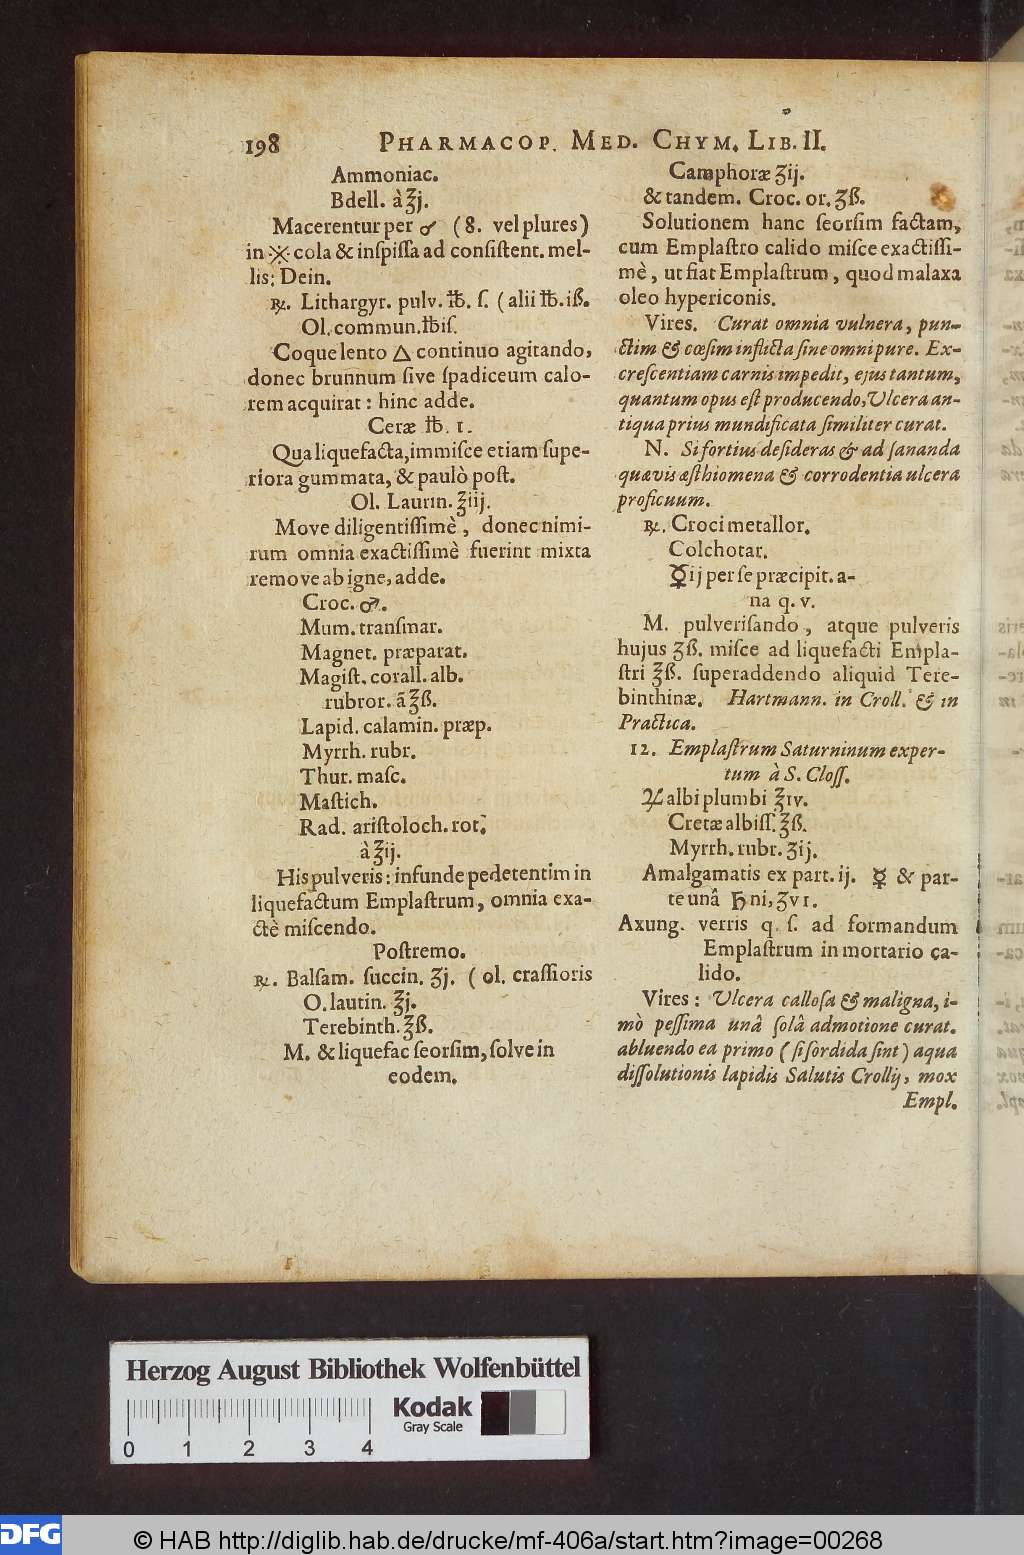 198 PHARMACOP. MED. CHYM. LIB. II.
Ammoniac.
Bdell. à ℥j.
Macerentur per ♂ (8. vel plures)
in ※ cola & inſpiſſa ad conſiſtent. mel-
lis: Dein.
℞. Lithargyr. pulv. ℔. ſ. (alii ℔. iß.
Ol. commun. ℔iſ.
Coque lento △ continuo agitando,
donec brunnum ſive ſpadiceum calo-
rem acquirat: hinc adde.
Ceræ ℔. 1.
Qua liquefacta, immiſce etiam ſupe-
riora gummata, & paulò poſt.
Ol. Laurin. ℥iij.
Move diligentiſſimè, donec nimi-
rum omnia exactiſſimè fuerint mixta
remove ab igne, adde.
Croc. ♂.
Mum. tranſmar.
Magnet. præparat.
Magiſt. corall. alb.
rubror. ā ℥ß.
Lapid. calamin. præp.
Myrrh. rubr.
Thur. maſc.
Maſtich.
Rad. ariſtoloch. rot.
à ℥ij.
His pulveris: infunde pedetentim in
liquefactum Emplaſtrum, omnia exa-
ctè miſcendo.
Poſtremo.
℞. Balſam. ſuccin. ʒj. (ol. craſſioris
O. lautin. ℥j.
Terebinth. ℥ß.
M. & liquefac ſeorſim, ſolve in
eodem.
Camphoræ ʒij.
& tandem. Croc. or. ʒß.
Solutionem hanc ſeorſim factam,
cum Emplaſtro calido miſce exactiſſi-
mè, ut fiat Emplaſtrum, quod malaxa
oleo hypericonis.
Vires. Curat omnia vulnera, pun-
ctim & cæſim inflicta ſine omni pure. Ex-
creſcentiam carnis impedit, ejus tantum,
quantum opus eſt producendo, Ulcera an-
tiqua prius mundificata ſimiliter curat.
N. Si fortius deſideras & ad ſananda
quævis æſthiomena & corrodentia ulcera
proficuum.
℞. Croci metallor.
Colchotar.
☿ij per ſe præcipit. a-
na q. v.
M. pulveriſando, atque pulveris
hujus ʒß. miſce ad liquefacti Empla-
ſtri ℥ß. ſuperaddendo aliquid Tere-
binthinæ. Hartmann. in Croll. & in
Practica.
12. Emplaſtrum Saturninum exper-
tum à S. Cloſſ.
♃ albi plumbi ℥iv.
Cretæ albiſſ. ℥ß.
Myrrh. rubr. ʒij.
Amalgamatis ex part. ij. ☿ & par-
te unâ ♄ni, ʒv1.
Axung. verris q. ſ. ad formandum
Emplaſtrum in mortario ca-
lido.
Vires: Ulcera calloſa & maligna, i-
mò peſſima unâ ſolâ admotione curat.
abluendo ea primo (ſi ſordida ſint) aqua
diſſolutionis lapidis Salutis Crollij, mox
Empl.
Herzog August Bibliothek Wolfenbüttel
Kodak
Gray Scale
0 1 2 3 4
DFG © HAB http://diglib.hab.de/drucke/mf-406a/start.htm?image=00268